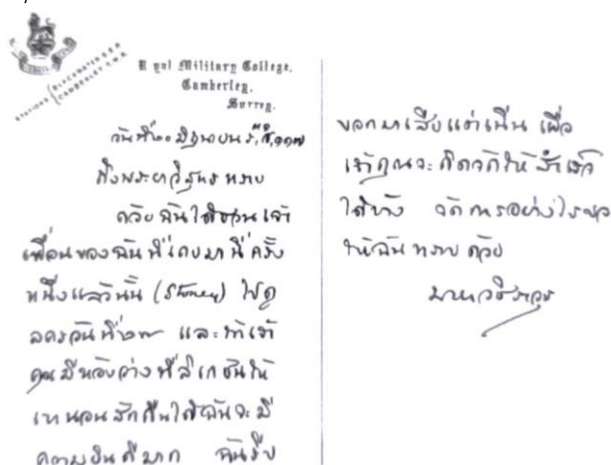 Royal Military College,
Camberley,
Surrey.
STATIONS BLACKWATER S.E.R. CAMBERLEY L.S.W.R.
วันที่ ๒๐ มิถุนายน ร,ศ,๑๑๗
ถึงพระยาวิสุทธ ทราบ
ด้วยฉันได้ชวนเจ้า
เพื่อนของฉันที่เคยมานี่ครั้ง
หนึ่งแล้วนั้น (Stoney) ไปดู
ลครวันที่ และถ้าเจ้า
คุณมีห้องว่างที่ลีเกชันให้
เขานอนสักคืนได้ฉันจะมี
ความยินดีมาก ฉันรีบ
บอกมาเสียแต่เนิ่น เผื่อ
เจ้าคุณจะคิดจัดให้สำเร็จ
ได้บ้าง จัดการอย่างไรขอ
ให้ฉันทราบด้วย
มหาวชิราวุธ